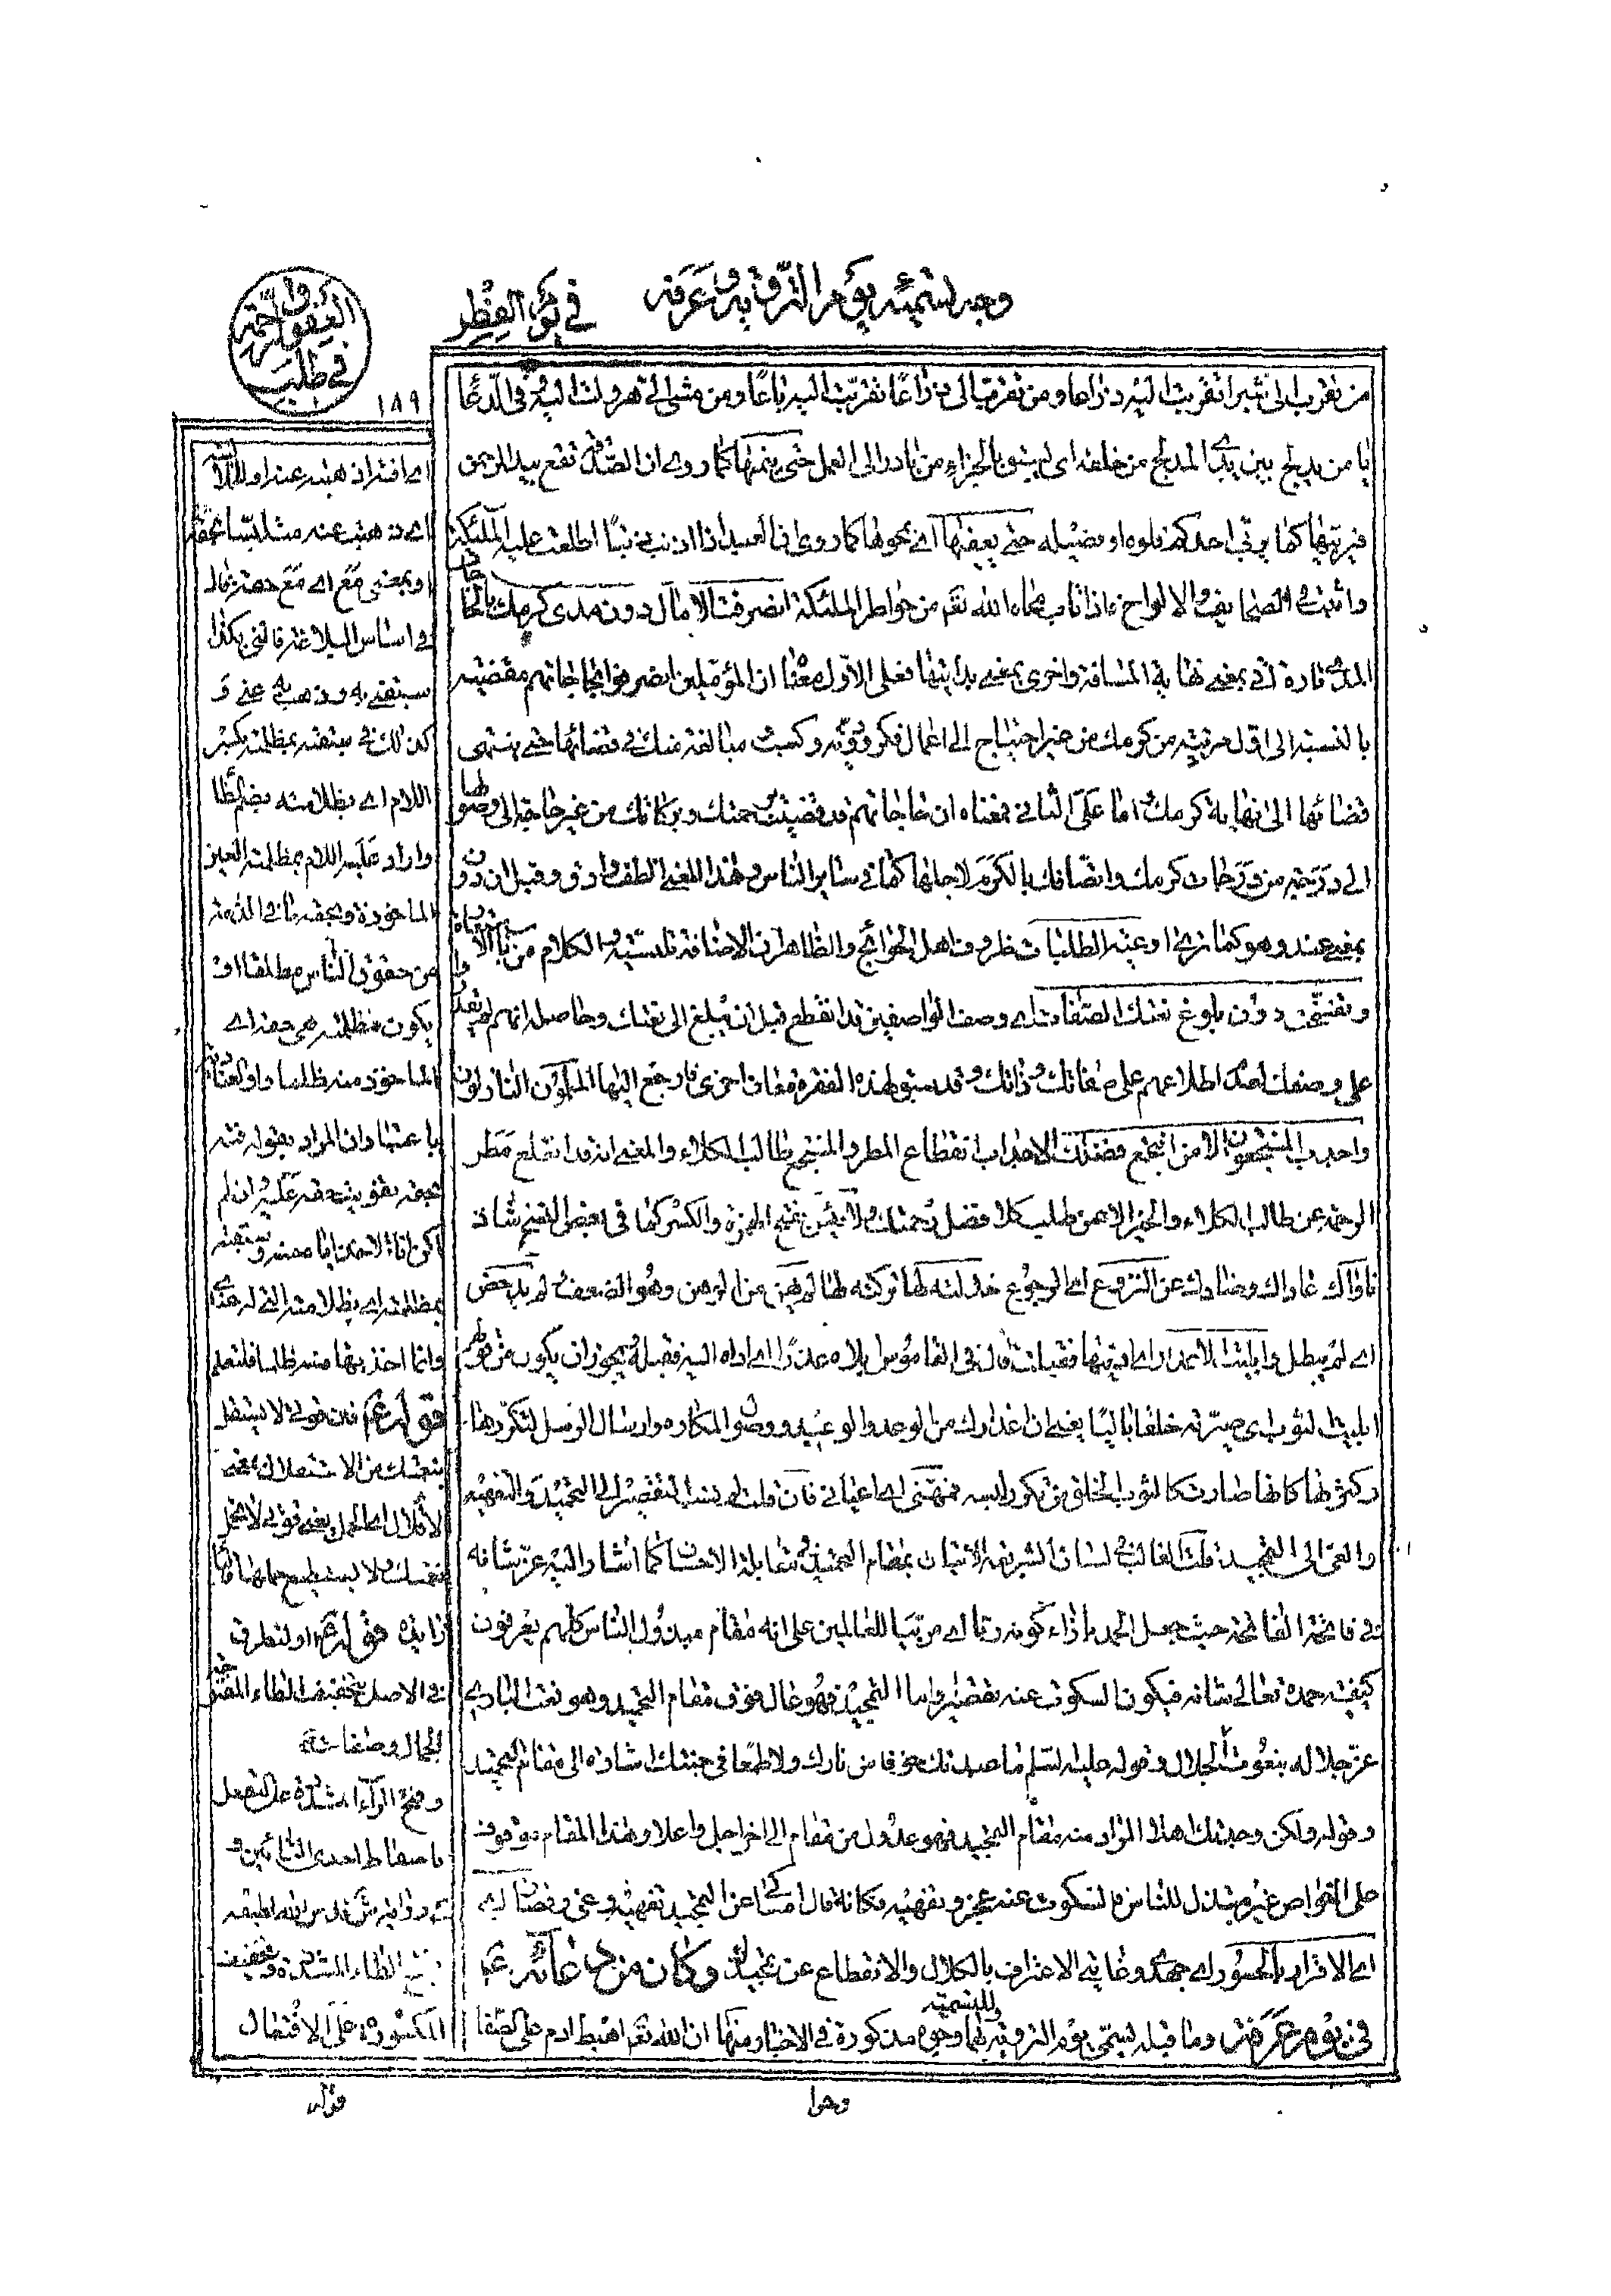 وجه تسميه يوم التروية وعرفة
في يوم الفطر
في طلب العفو والرحمة
١٨٩
من تقرب الى شبرا تقربت اليه ذراعا ومن تقرب الى ذراعًا تقربت اليه باعًا ومن مشى الى هرولت اليه وفي الدعا
يا من يدلج بين يدى المدلج من خلقه اى يسبق بالجزاء من بادر الى العمل حتى ينميها كما روى ان الصدقة تقع بيد الرحمن
فيربيها كما يربى احدكم فلوه او فصيله حتى يعفيها اى يمحوها كما روى ان العبد اذا اذنب ذنبًا اطلعت عليه الملئكة
واثبت في الصحايف والالواح فاذا تاب محاه الله تعم من خواطر الملئكة انصرفت الامال دون مدى كرمك بالحاجات
المدى تارة تاتى بمعنى نهاية المسافة واخرى بمعنى بدايتها فعلى الاول معناه ان المؤملين انصرفوا بحاجاتهم مقضية
بالنسبة الى اول مرتبة من كرمك من غير احتياج الى اعمال فكر وروية وكسبت مبالغة منك في قضائها حتى ينتهى
قضائها الى نهاية كرمك اما على الثاني فمعناه ان حاجاتهم قد قضيت برحمتك وبركاتك من غير حاجة الى وصولها
الى درجة من درجات كرمك واتصافك بالكرم لاجلها كما في ساير الناس وهذا المعنى الطف وادق وقيل ان دون
بمعنى عند وهو كما ترى اوعية الطلبات ظروف اهل الحوائج والظاهر ان الاضافة للتشبيه والكلام من باب الاستعارة
وتفسخت دون بلوغ نعتك الصفات اى وصف الواصفين قد انقطع قبل ان يبلغ الى نعتك وحاصله انهم لم يقدروا
على وصفك لعدم اطلاعهم على صفاتك وذاتك وقد سبق لهذه الفقرة معان اخرى فارجع اليها المملون النازلون
واجدب المنتجعون الا من انتجع فضلك الاجداب انقطاع المطر والمنتجع طالب الكلاء والمعنى انه قد انقلع مطر
الرحمة عن طالب الكلاء والخير الا عمن طلب كلاء فضل رحمتك ولا يئس بفتح الهمزة والكسر كما في بعض النسخ شاذ
ناواك عاداك وضادك عن النزوع اى الرجوع خذلته لها تركته لها لم يهن من الوهن وهو الضعف لم يدحض
اى لم يبطل وابليت الاعذار اى بينتها فقيلت قال في القاموس ابلاه عذرًا اى اداه اليه فقبله ويجوز ان يكون من قولهم
ابليت الثوب اى صيرته خلقا باليًا يعنى ان عذارك من الوعد والوعيد ووصول المكاره وارسال الرسل لتكررها
وكثرتها كانها صارت كالثوب الخلق من تكرر لبسه فههنى اى اعيانى فان قلت لم نسب التقصير الى التحميد والتفهيه
والعى الى التمجيد قلت الغالب في لسان الشريعة الاتيان بمقام التحميد في مقابلة الاحسان كما اشار اليه عز شانه
في فاتحة الفاتحة حيث جعل الحمد بازاء كونه ربا اى مربيا للعالمين على انه مقام مبذول الناس كلهم يعرفون
كيفية حمده تعالى شانه فيكون السكوت عنه تقصير واما التمجيد فهو عال فوق مقام التحميد وهو نعت البارى
عز جلاله بنعوت الجلال وقوله عليه السلم ما عبدتك خوفا من نارك ولا طمعًا في جنتك اشارة الى مقام التحميد
وقوله ولكن وجدتك هذا المراد منه مقام التمجيد فهو عدول من مقام الى اخر اجل واعلا وهذا المقام موقوف
على الخواص غير مبتذل للناس فالسكوت عنه عجز وتفهيه فكانه قال امساكى عن التمجيد تفهيه وعى وقصارى
اى الاقرار بالحسور اى جهدى وغايتى الاعتراف بالكلال والانقطاع عن تمجيدك وكان من دعائه ع
في يوم عرفة وما قبله يسمى يوم التروية ولتسميتهما وجوه مذكورة في الاخبار منها ان الله تعم اهبط ادم على الصفا
وحوا
اى ذهبت عنه متلبسا بحقه
او بمعنى مع اى مع حقه قال
في اساس البلاغة فاتنى بكذا
سبقنى به وذهب به عنى و
كذلك في سبقته بمظلمته بكسر
اللام اى بظلامته بضم الظا
واراد عليه اللام بمظلمته العين
الماخوذة وبحقه ما في الذمة
من حقوق الناس مطلقا او
يكون مظلمته هي حقه اى
الماخوذ منه ظلما
باعتبار ان المراد بقوله فته
بحقه تفويت حقه عليه ان لم
اكن انا الاخذ اياه منه وسبقته
بمظلمته اى بظلامته التى له عندى
وانما اخذ بها منه ظلما فلتعلم
قوله ع فان قوتى لا يستقل
بنقمتك من الاستقلال بمعنى
الاقلال اى الحمل يعنى قوتى لا تحمل
نقمتك ولا يستطيع حملها
زايدة قوله ع او لتطرق
في الاصل بتخفيف الطاء المفتوحة
الجمال وصفاته
وفتح الراء المشددة على التفعل
باسقاط احدى التائين و
المكسورة على الافتعال
قوله